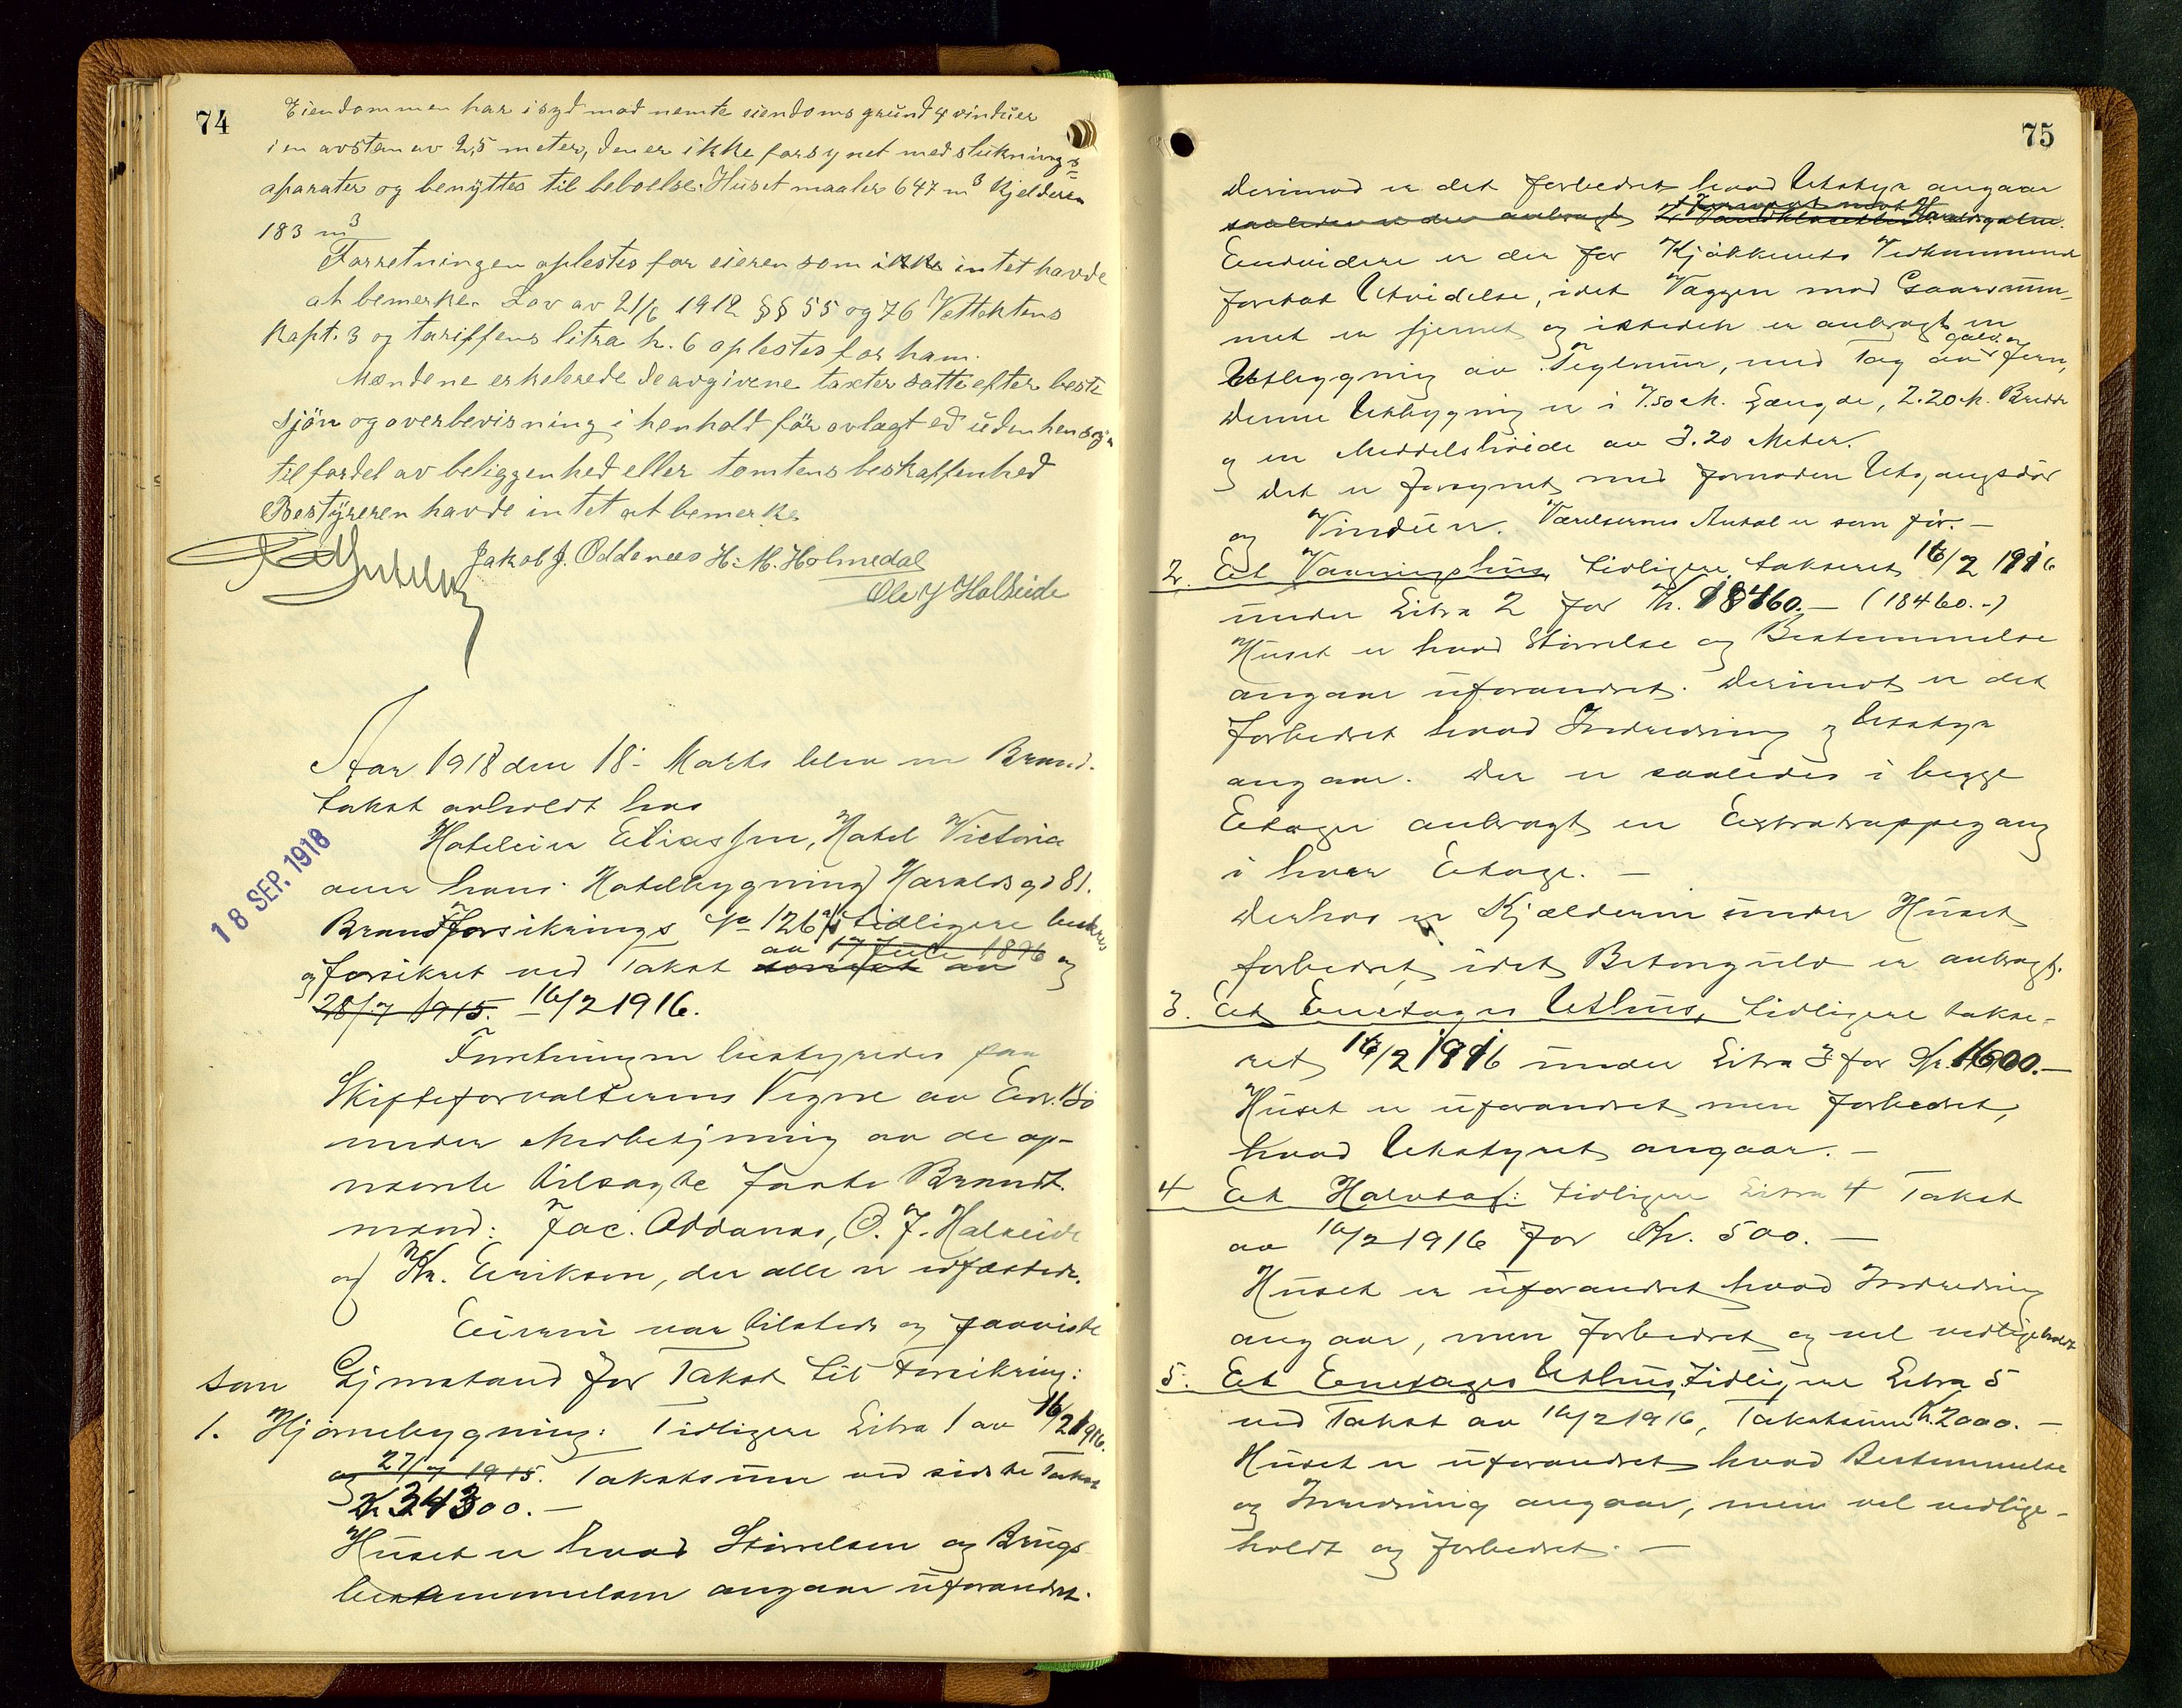 74
Eiendommen har i syd mod nemte eiendoms grund 4 vinduer
i en avstan av 2,5 meter, den er ikke forsynet med sluknings
aparater og benyttes til beboelse. Huset maaler 647 m³ Kjelderen
183 m³
Forretningen oplestes for eieren som ikke intet havde
at bemerke. Lov av 21/6 1912 §§ 55 og 76 Vettektens
Kapt. 3 og tariffens litra h. 6 oplestes for ham.
Mændene erkelerede de avgivene taxter satte efter beste
sjön og overbevisning i henhold før avlagt ed uden hensyn
til fordel av beliggenhed eller tomtens beskaffenhed
Bestyreren havde intet at bemerke
Jakob J. Oddenæs H. M. Holmedal
Ole J Halseide
Aar 1918 den 18. Marts blev en Brand-
takst avholdt hos
Hoteleier Eliassen, Hotel Victoria
over hans Hotelbygning Haraldsgd 81.
18 SEP. 1918
Brandforsikrings No 126 tidligere beskrev
av 17 Juli 1896 og
og forsikret ved Takst av
28/7 1915. 16/2 1916.
Forretningen bestyredes paa
Skifteforvalterens Vegne av Edv. Bø
under Medbetjening av de op-
nævnte tilsagte faste Brandt-
mænd: Jac. Oddenæs, O. J. Halseide
og Kr. Eriksen, der alle er edfæstede.
Eieren var tilstede og paaviste
som Gjenstand for Takst til Forsikring:
1. Hjørnebygning: Tidligere Litra 1 av 16/2 1916.
og 27/7 1915. Takstsum ved sidste Takst
Kr 34300.—
Huset er hvad Størrelsen og Brugs-
bestemmelsen angaar uforandret.
75
Derimod er det forbedret hvad Utstyr angaar
saaledes er der anbragt 2 Vandklosetter
Endvidere er der for Kjøkkenets Vedkommende
foretat Utvidelse, idet Væggen mod Gaardsrum-
met er fjernet og istedet er anbragt en
galv.
Utbygning av Teglmur, med Tag av Jern,
Denne Utbygning er i 7.50 M. Længde, 2.20 M. Bredde
og en Middelshøide av 3.20 Meter.
Det er forsynet med fornøden Utgangsdør
og Vinduer. Værelsernes Antal er som før. —
2. Et Vaaningshus, tidligere takseret 16/2 1916
under Litra 2 for Kr. 18460.— (18460.-)
Huset er hvad Størrelse og Bestemmelse
angaar uforandret. Derimot er det
forbedret hvad Indredning og Utstyr
angaar. Der er saaledes i begge
Etager anbragt en Extratrappegang
i hver Etage. —
Derhos er Kjælderen under Huset
forbedret, idet Betongulv er anbragt.
3. Et Enetages Uthus, tidligere takse-
ret 16/2 1916 under Litra 3 for Kr. 1600.—
Huset er uforandret men forbedret,
hvad Utstyret angaar. —
4 Et Halvtag: tidligere Litra 4 Takst
av 16/2 1916 for Kr. 500. —
Huset er uforandret hvad Indredning
angaar, men forbedret og vel vedligeholdt
5. Et Enetages Uthus, Tidligere Litra 5
ved Takst av 16/2 1916, Takstsum Kr. 2000. —
Huset er uforandret hvad Bestemmelse
og Indredning angaar, men vel vedlige-
holdt og forbedret. —